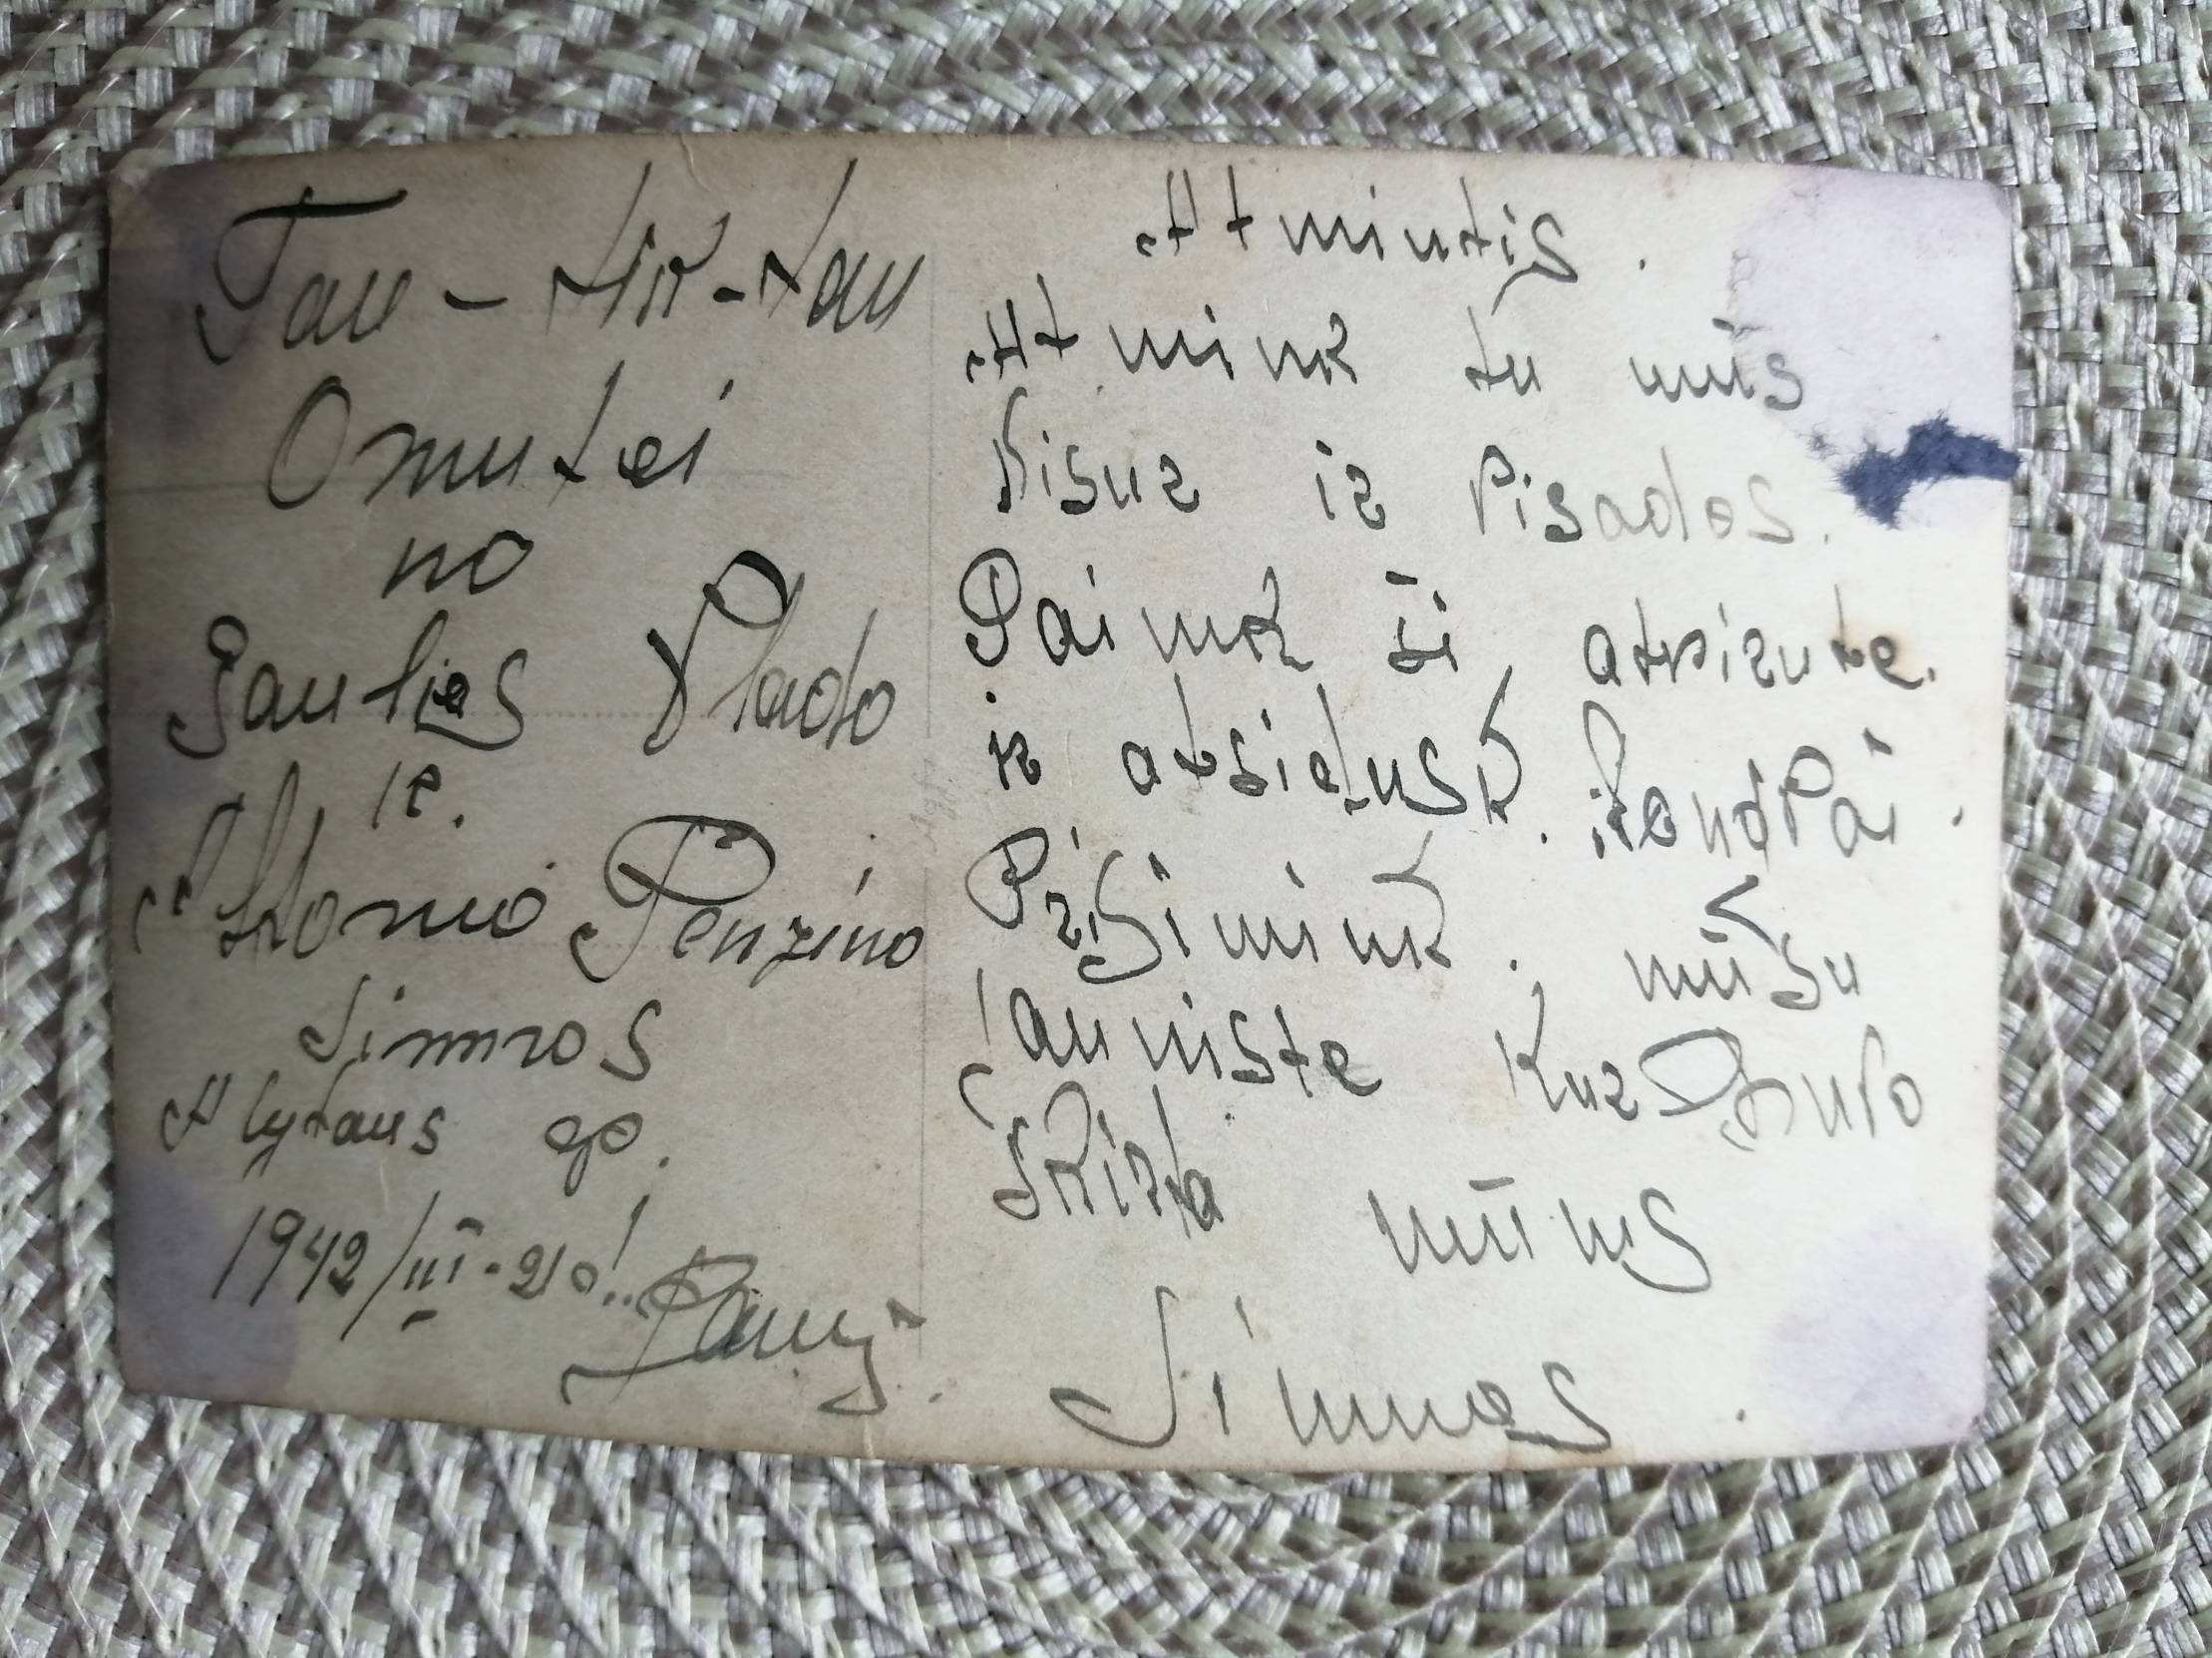 Tau - Ar - tau
Omutei
no
Saulies Vlado
ir.
Adomo Penzino
Simnos
Alytaus ap.
1942/III-20!..
Atmintis.
Atmink tu mus
Visur ir Visados.
Paimk ši atvirute.
ir atsidusk. Kandai.
Prisimink. mūsu
jauniste Kur Buvo
Skirta mūms
Simnas.